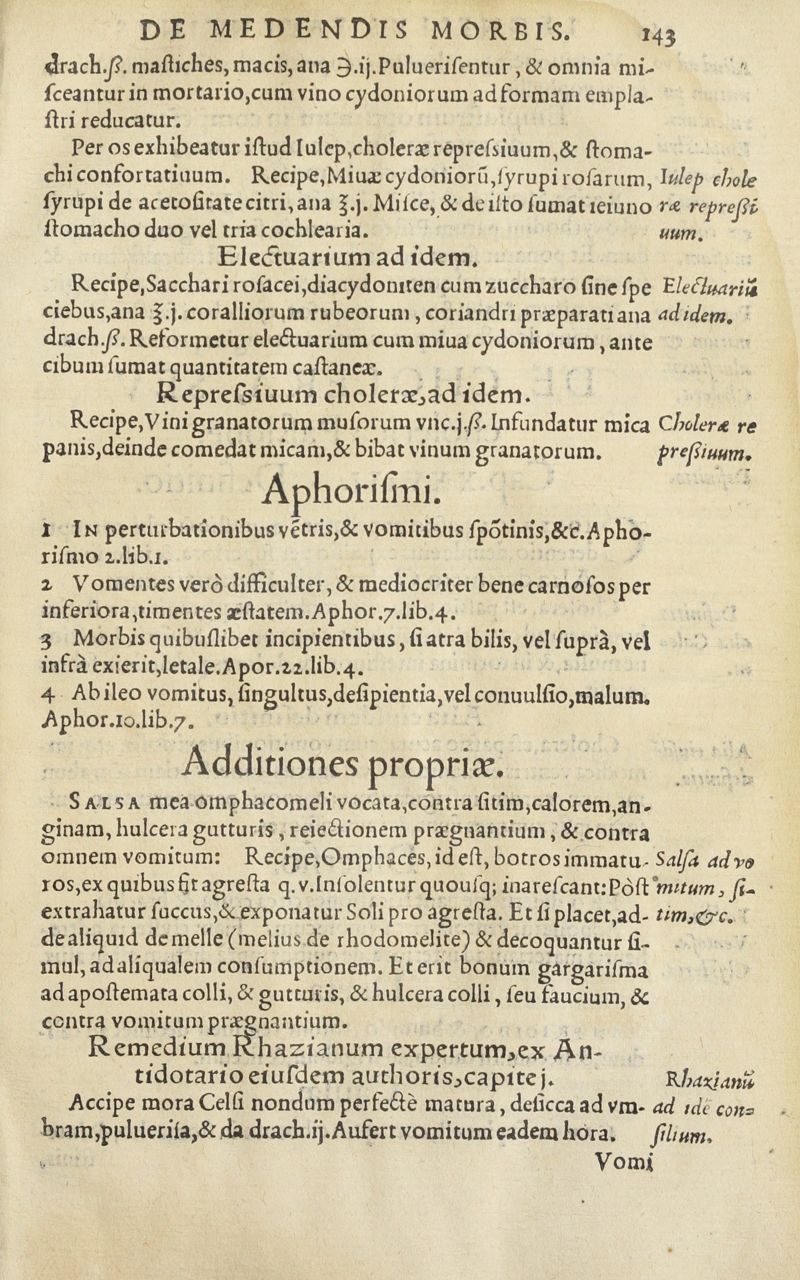 DE MEDENDIS MORBIS. 143
drach.ß. maſtiches, macis, ana ℈.ij. Pulueriſentur, & omnia mi-
ſceantur in mortario, cum vino cydoniorum ad formam empla-
ſtri reducatur.
Per os exhibeatur iſtud Iulep, choleræ repreſsiuum, & ſtoma-
chi confortatiuum. Recipe, Miuæ cydoniorũ, ſyrupi roſarum,
Iulep chole
ſyrupi de acetoſitate citri, ana ℥.j. Miſce, & de iſto ſumat ieiuno
ræ repreßi
ſtomacho duo vel tria cochlearia.
uum.
Electuarium ad idem.
Recipe, Sacchari roſacei, diacydoniten cum zuccharo ſine ſpe
Electuariũ
ciebus, ana ℥.j. coralliorum rubeorum, coriandri præparati ana
ad idem.
drach.ß. Reformetur electuarium cum miua cydoniorum, ante
cibum ſumat quantitatem caſtaneæ.
Repreſsiuum choleræ, ad idem.
Recipe, Vini granatorum muſorum vnc.j.ß. Infundatur mica
Choleræ re
panis, deinde comedat micam, & bibat vinum granatorum.
preßiuum.
Aphoriſmi.
1 IN perturbationibus vẽtris, & vomitibus ſpõtinis, &c. Apho-
riſmo 2.lib.1.
2 Vomentes verò difficulter, & mediocriter bene carnoſos per
inferiora, timentes æſtatem. Aphor.7.lib.4.
3 Morbis quibuſlibet incipientibus, ſi atra bilis, vel ſuprà, vel
infrà exierit, letale. Apor.22.lib.4.
4 Ab ileo vomitus, ſingultus, deſipientia, vel conuulſio, malum.
Aphor.10.lib.7.
Additiones propriæ.
SALSA mea omphacomeli vocata, contra ſitim, calorem, an-
ginam, hulcera gutturis, reiectionem prægnantium, & contra
omnem vomitum: Recipe, Omphaces, id eſt, botros immatu-
Salſa ad vo
ros, ex quibus fit agreſta q.v. Inſolentur quouſq; inareſcant: Pòſt
mitum, ſi-
extrahatur ſuccus, & exponatur Soli pro agreſta. Et ſi placet, ad-
tim, &c.
de aliquid de melle (melius de rhodomelite) & decoquantur ſi-
mul, ad aliqualem conſumptionem. Et erit bonum gargariſma
ad apoſtemata colli, & gutturis, & hulcera colli, ſeu faucium, &
contra vomitum prægnantium.
Remedium Rhazianum expertum, ex An-
tidotario eiuſdem authoris, capite j.
Rhazianũ
Accipe mora Celſi nondum perfectè matura, deſicca ad vm-
ad idẽ con-
bram, pulueriſa, & da drach.ij. Aufert vomitum eadem hora.
ſilium.
Vomi